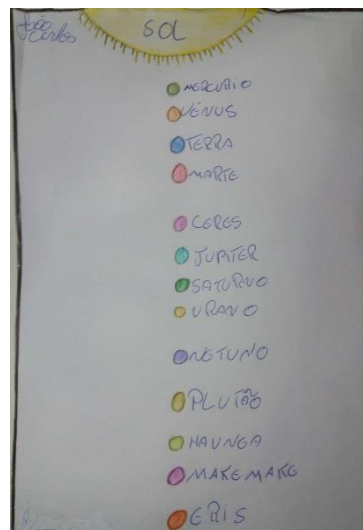 João
Carlos
SOL
MERCURIO
VÊNUS
TERRA
MARTE
CERES
JUPITER
SATURNO
URANO
NETUNO
PLUTÃO
HAUNGA
MAKEMAKE
ERIS